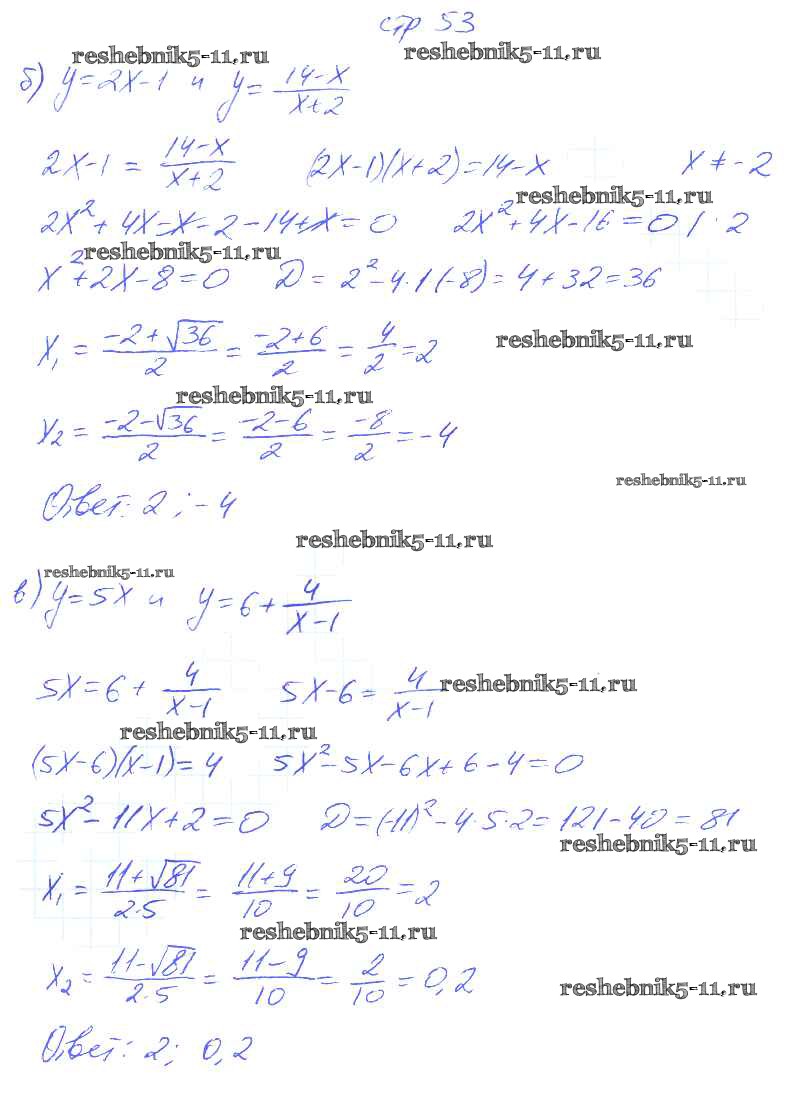 стр 53
reshebnik5-11.ru reshebnik5-11.ru
б) y=2x-1 и y= (14-x)/(x+2)
2x-1 = (14-x)/(x+2) (2x-1)(x+2)=14-x x≠-2
reshebnik5-11.ru
2x²+4x-x-2-14+x=0 2x²+4x-16=0 / ·2
reshebnik5-11.ru
x²+2x-8=0 D=2²-4·1(-8)=4+32=36
x₁ = (-2+√36)/2 = (-2+6)/2 = 4/2 =2
reshebnik5-11.ru
reshebnik5-11.ru
x₂ = (-2-√36)/2 = (-2-6)/2 = -8/2 =-4
reshebnik5-11.ru
Ответ: 2 ; -4
reshebnik5-11.ru
reshebnik5-11.ru
в) y=5x и y=6+ 4/(x-1)
5x=6+ 4/(x-1) 5x-6= 4/(x-1)
reshebnik5-11.ru
reshebnik5-11.ru
(5x-6)(x-1)=4 5x²-5x-6x+6-4=0
5x²-11x+2=0 D=(-11)²-4·5·2=121-40=81
reshebnik5-11.ru
x₁ = (11+√81)/(2·5) = (11+9)/10 = 20/10 =2
reshebnik5-11.ru
x₂ = (11-√81)/(2·5) = (11-9)/10 = 2/10 =0,2
reshebnik5-11.ru
Ответ: 2; 0,2